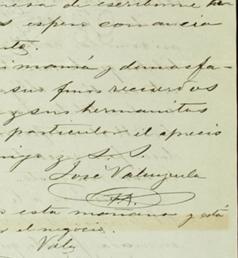 de escribirme
espero con ancia
mamá y demas fa-
sus finos recuerdos
y sus hermanitas
particular el aprecio
migo y S. S.
José Valenzuela
esta mañana y está
el negocio.
Vale